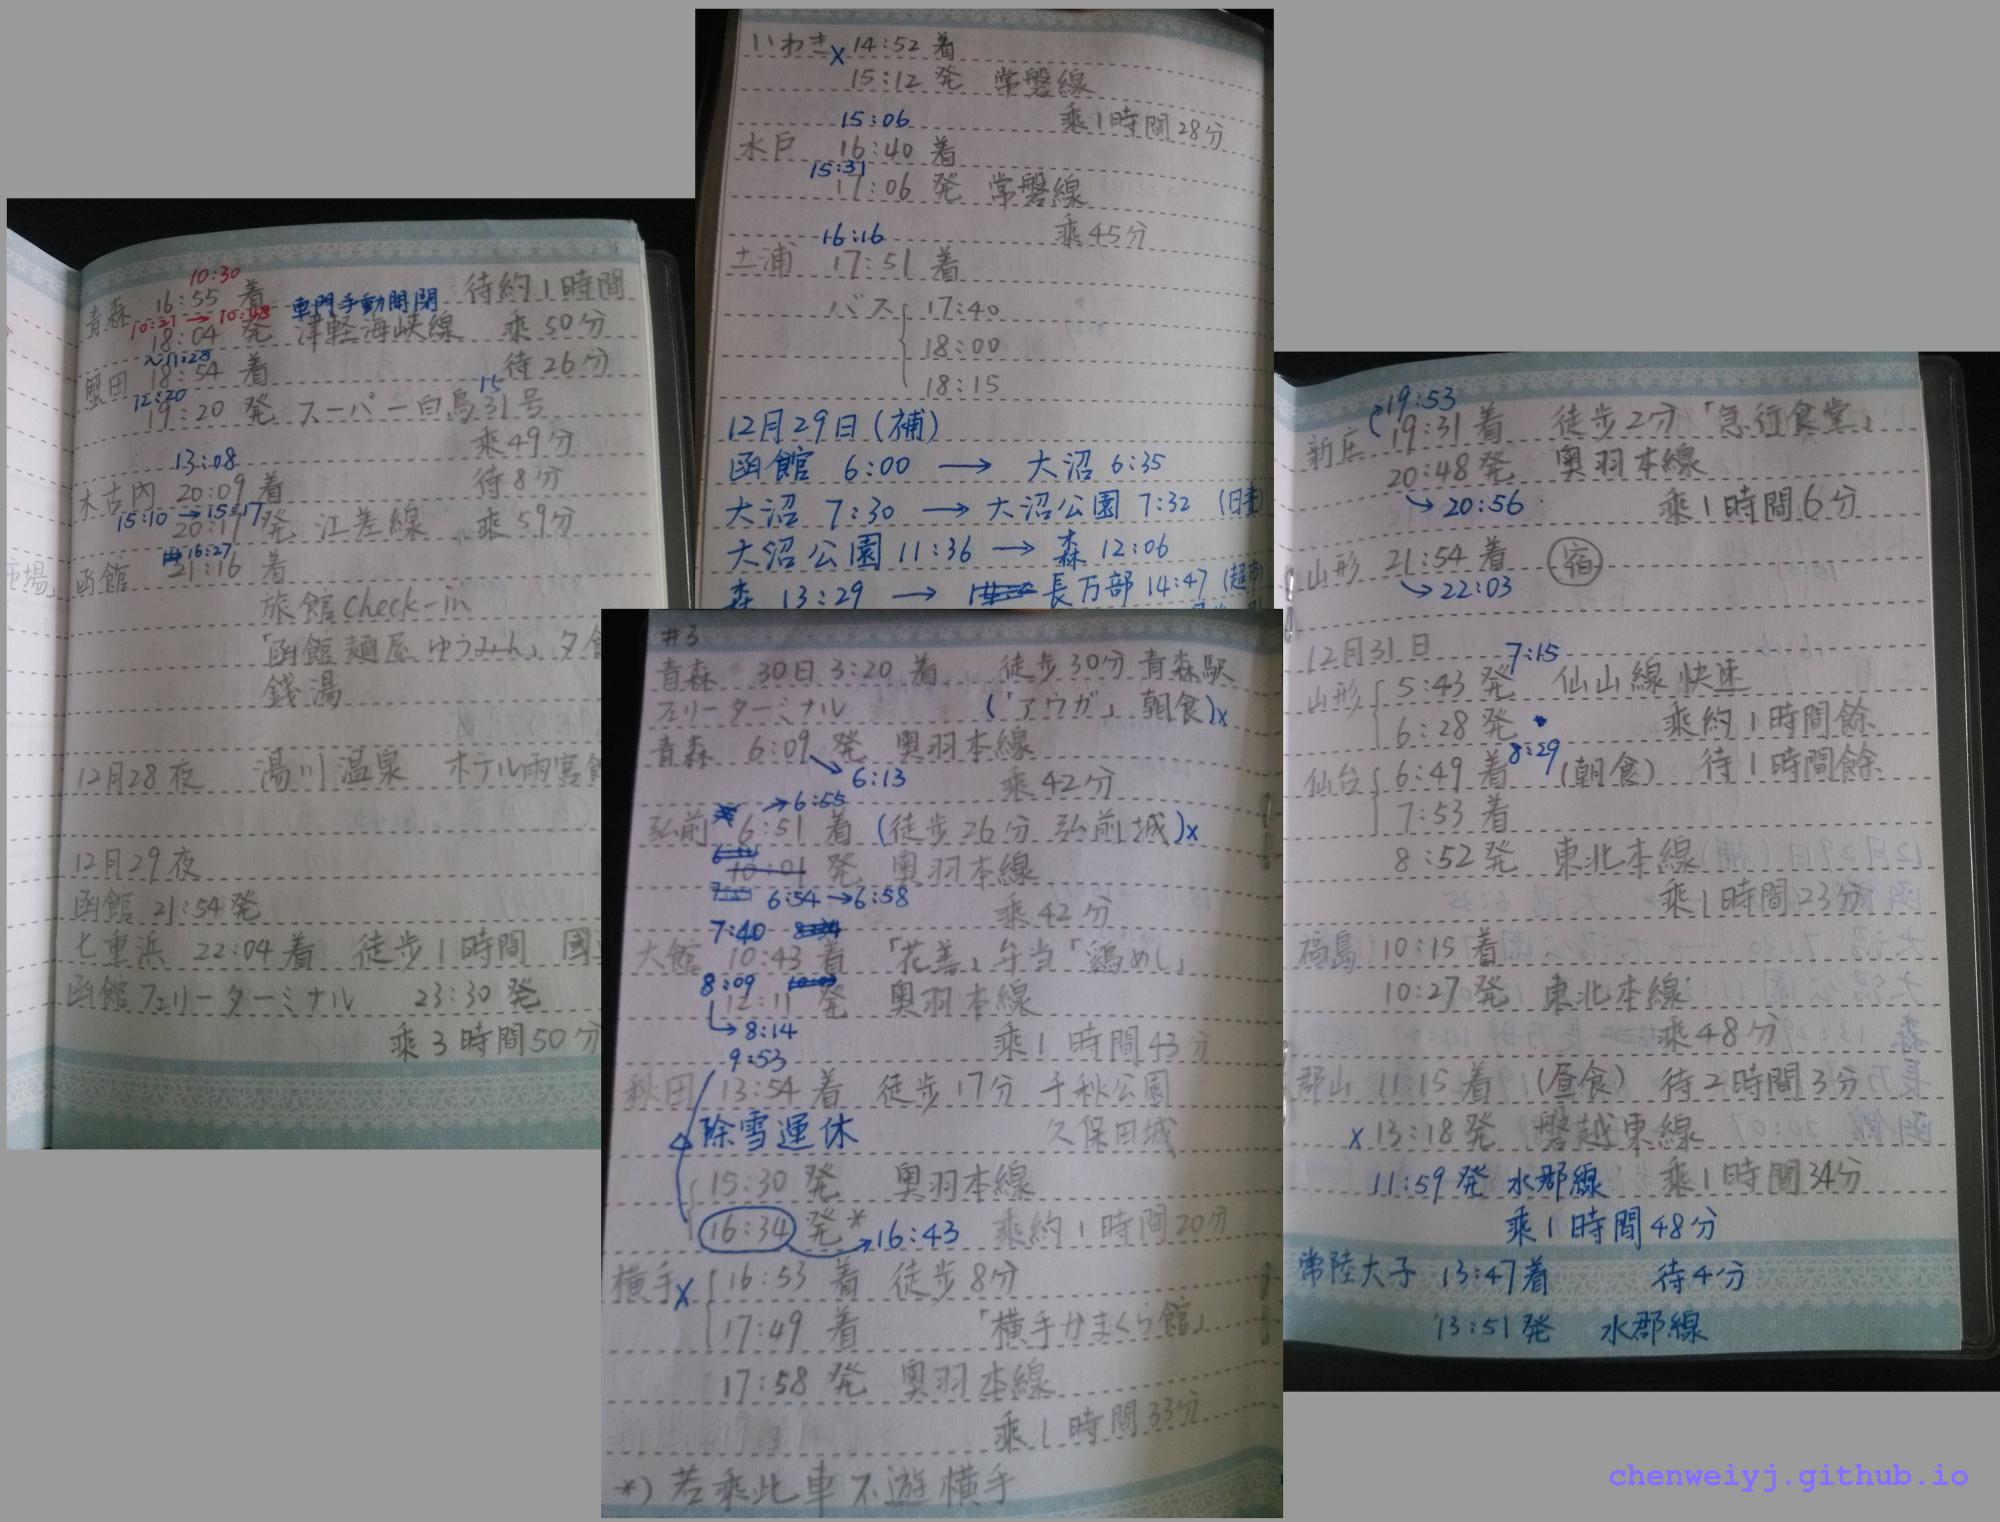 10:30
青森 16:55 着 待約1時間
10:21 → 10:48 車門手動開閉
18:04 発 津軽海峡線 乗50分
11:28
蟹田 18:54 着 待26分
12:20 15
19:20 発 スーパー白鳥31号
乗49分
13:08
木古内 20:09 着 待8分
15:10 → 15:17
20:17 発 江差線 乗59分
16:27
函館 21:16 着
旅館check-in
「函館麺屋ゆうみん」夕食
銭湯
12月28夜 湯川温泉 ホテル雨宮館
12月29夜
函館 21:54発
七重浜 22:04着 徒歩1時間
函館フェリーターミナル 23:30発
乗3時間50分
いわき x 14:52 着
15:12 発 常磐線
15:06 乗1時間28分
水戸 16:40 着
15:31
17:06 発 常磐線
16:16 乗45分
土浦 17:51 着
バス 17:40
18:00
18:15
12月29日(補)
函館 6:00 → 大沼 6:35
大沼 7:30 → 大沼公園 7:32
大沼公園 11:36 → 森 12:06
森 13:29 → 長万部 14:47 (超市)
#3
青森 30日3:20 着 徒歩30分 青森駅
フェリーターミナル (「アウガ」朝食)x
青森 6:09 発 奥羽本線
→ 6:13 乗42分
→6:55
弘前 6:51 着 (徒歩26分 弘前城)x
10:01 発 奥羽本線
6:54→6:58 乗42分
7:40
大館 10:43 着 「花善」弁当「鶏めし」
8:09
12:11 発 奥羽本線
→8:14 乗1時間43分
9:53
秋田 13:54 着 徒歩17分 千秋公園
除雪運休 久保田城
15:30 発 奥羽本線
16:34 発* →16:43 乗約1時間20分
横手x 16:53 着 徒歩8分
17:49 着 「横手かまくら館」
17:58 発 奥羽本線
乗1時間33分
*) 若乘此車不遊横手
19:53
新庄 19:31着 徒歩2分「急行食堂」
20:48発 奥羽本線
→20:56 乗1時間6分
山形 21:54着 宿
→22:03
12月31日
7:15
山形 5:43 発 仙山線快速
6:28 発 乗約1時間餘
8:29
仙台 6:49 着 (朝食) 待1時間餘
7:53 着
8:52発 東北本線
乗1時間23分
福島 10:15着
10:27発 東北本線
乗48分
郡山 11:15着 (昼食) 待2時間3分
x 13:18発 磐越東線
11:59発 水郡線 乗1時間34分
乗1時間48分
常陸大子 13:47着 待4分
13:51発 水郡線
chenweiyj.github.io